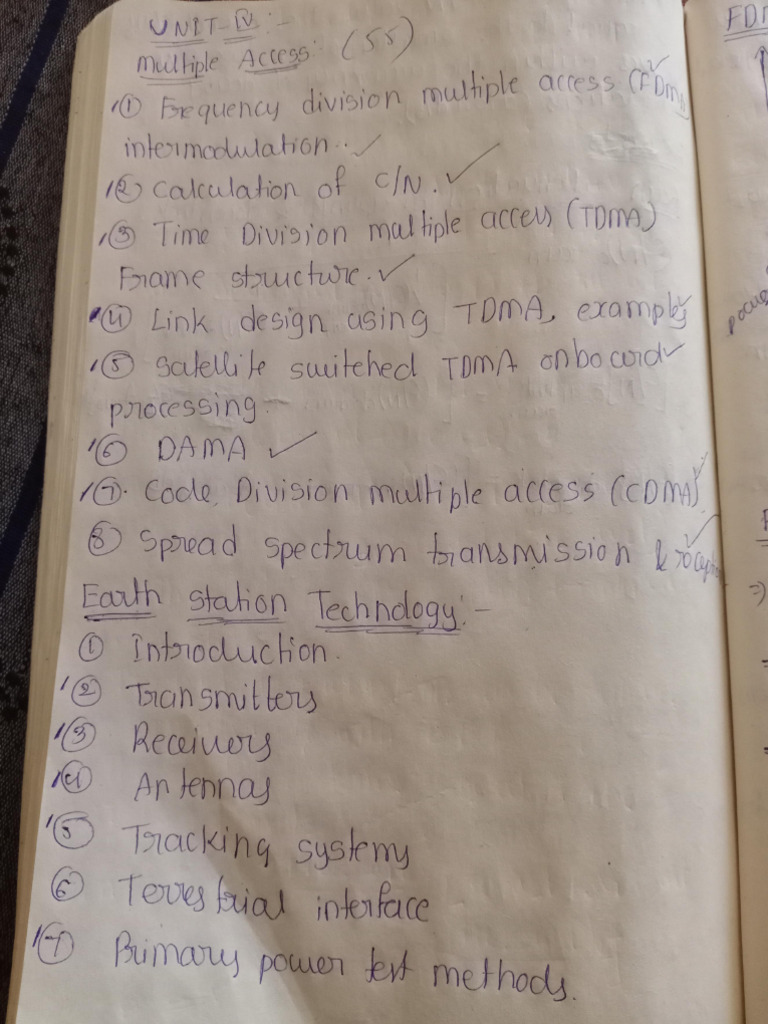 UNIT-IV:-
Multiple Access: (55)
① Frequency division multiple access (FDMA)
intermodulation..
② Calculation of C/N.
③ Time Division multiple access (TDMA)
Frame structure.
④ Link design using TDMA, examples
⑤ Satellite switched TDMA onboard
processing-
⑥ DAMA
⑦. Code Division multiple access (CDMA)
⑧ Spread spectrum transmission &
Earth Station Technology:-
① Introduction.
② Transmitters
③ Receivers
④ Antennas
⑤ Tracking systems
⑥ Terrestrial interface
⑦ Primary power test methods.